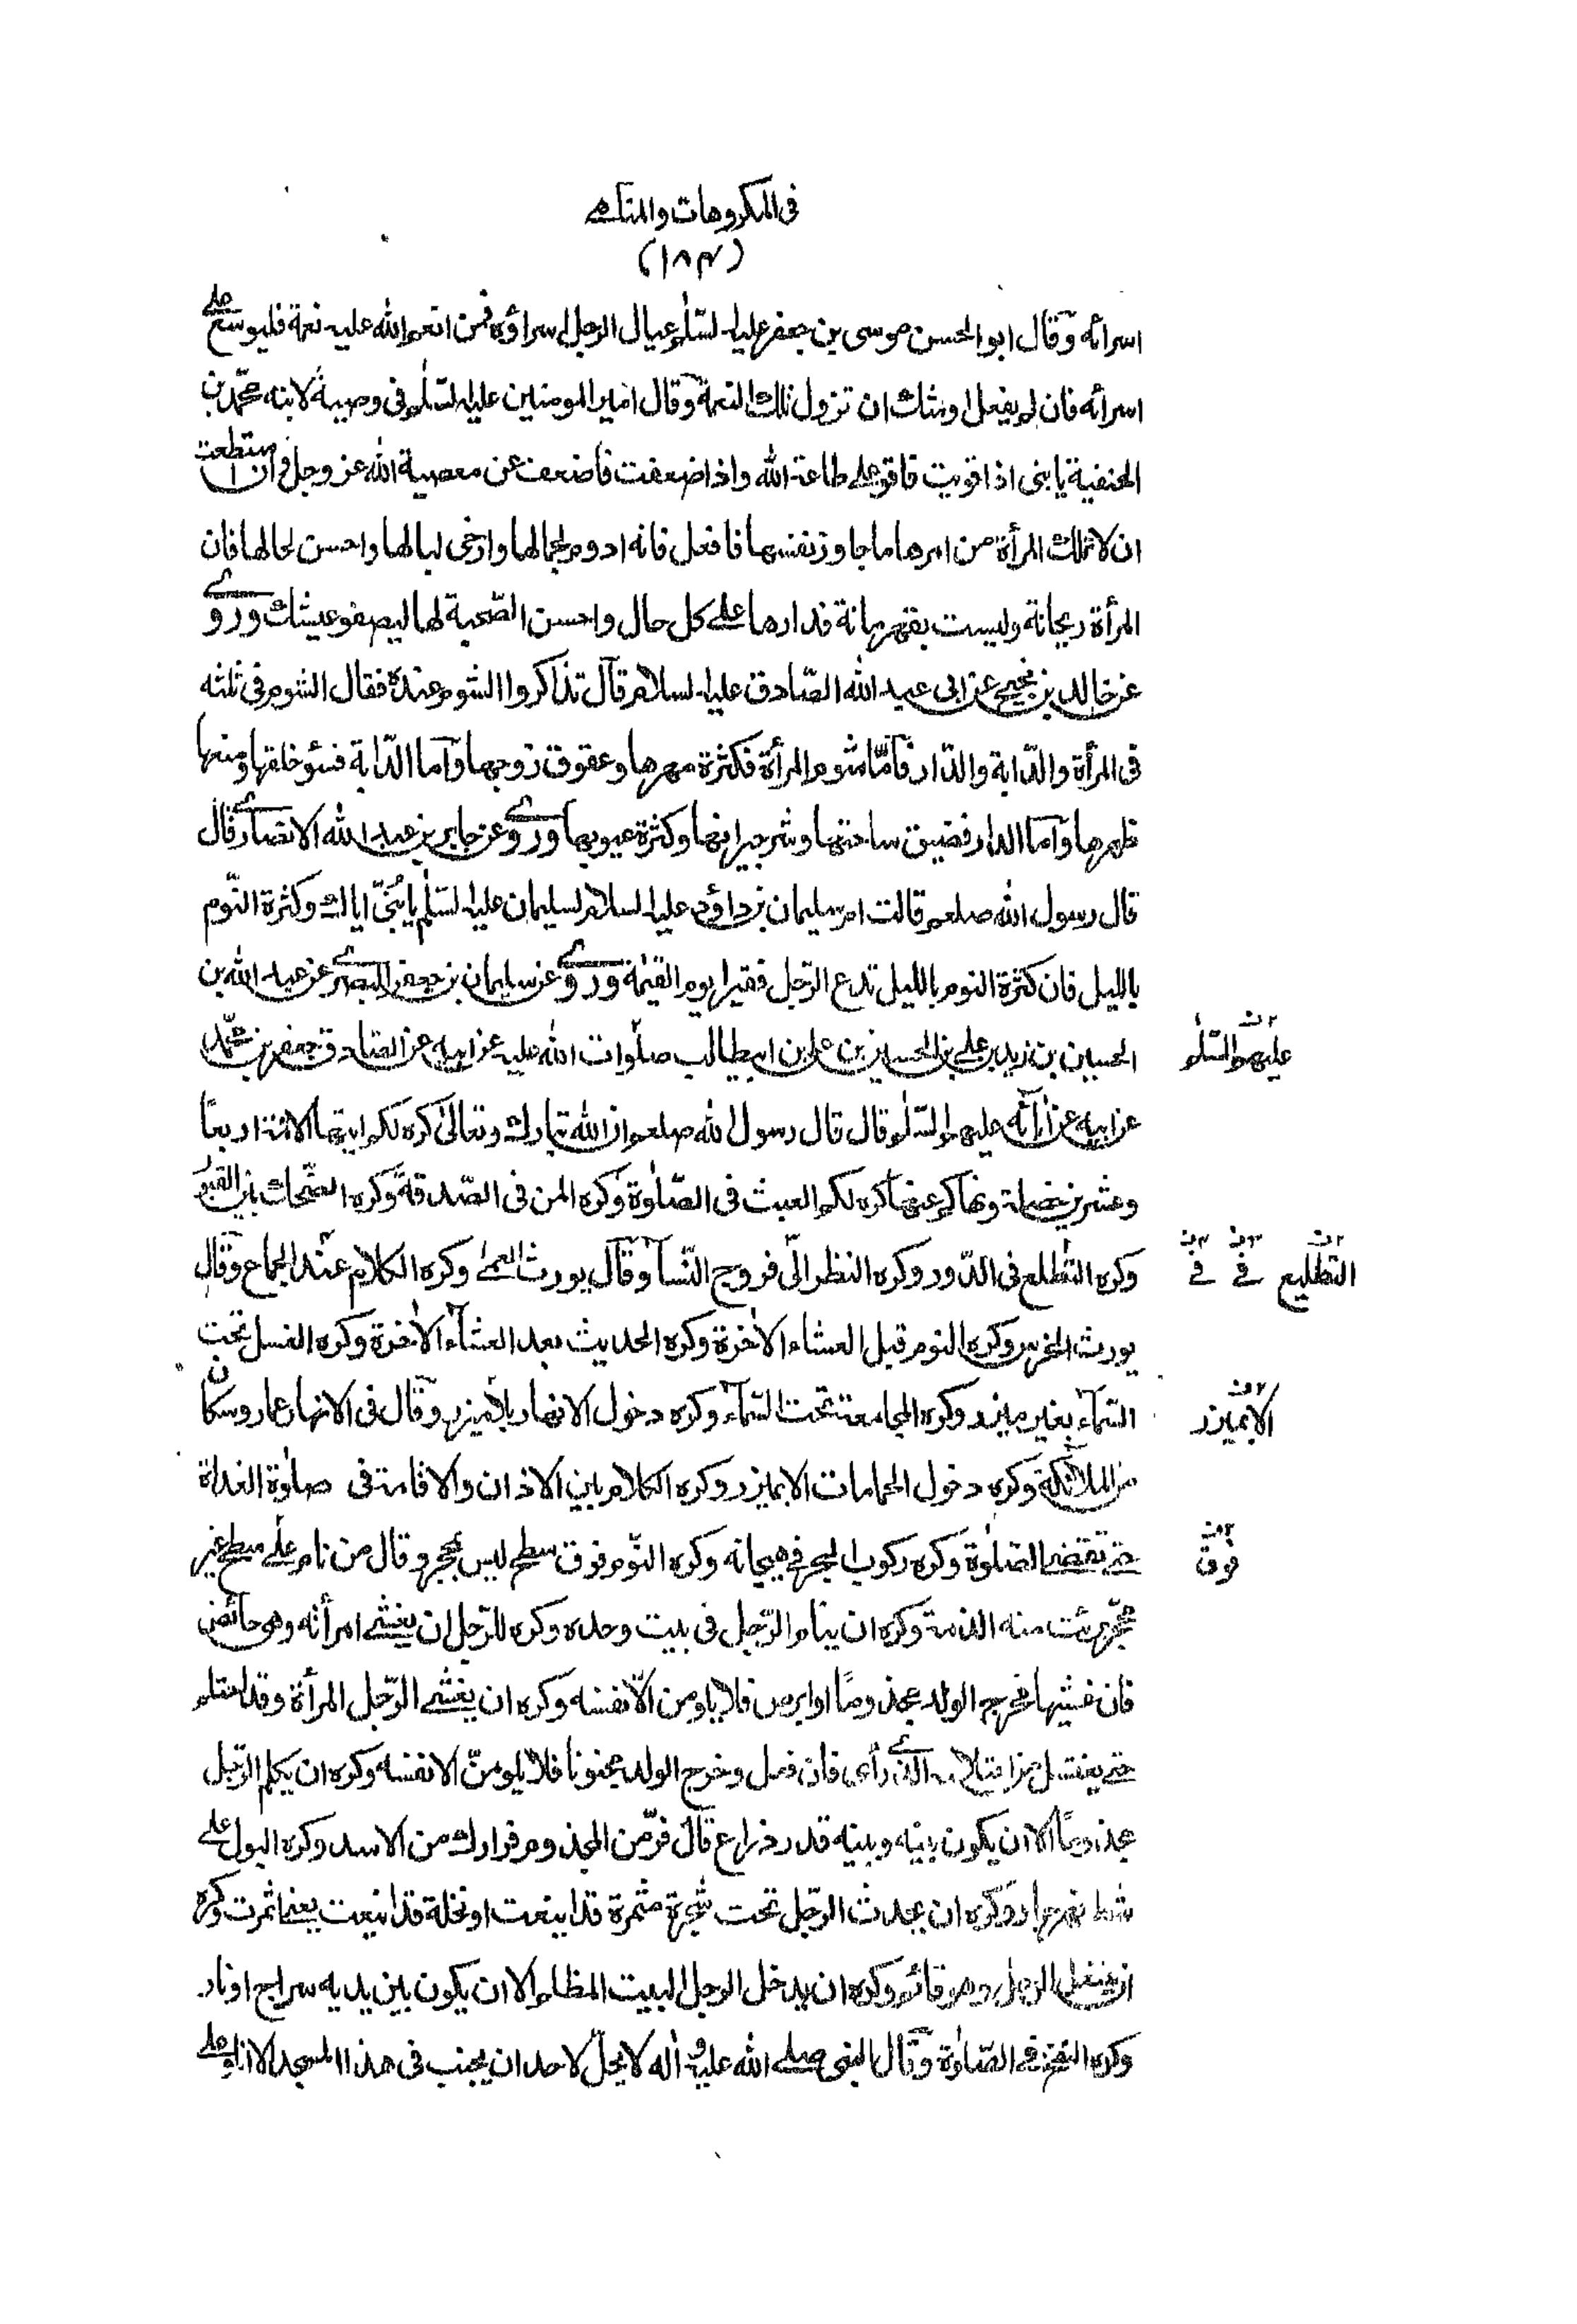 فى المكروهات والمناهے
(١٨٣)
اسرائه وقال ابو الحسن موسى بن جعفر عليه السّلم عيال الرجل اسراؤه فمن انعم الله عليه نعمة فليوسّع علے
اسرائه فان لم يفعل اوشك ان تزول تلك النعمة وقال امير المومنين عليه السّلم فى وصيه لابنه محمّد بن
الحنفية يا بنى اذا قويت فاقو على طاعة الله واذا ضعفت فاضعف عن معصية الله عز وجل وان استطعت
ان لا تملك المرأة من امرها ما جاوز نفسها فافعل فانه ادوم لجمالها وارخى لبالها واحسن لحالها فان
المرأة ريحانة وليست بقهرمانة فدارها علے كل حال واحسن الصّحبة لها ليصفو عيشك وروے
عن خالد بن نجيح عن ابى عبد الله الصّادق عليه السلام قال تذاكروا الشوم عنده فقال الشوم فى ثلثه
فى المرأة والدّابة والدّار فامّا شوم المرأة فكثرة مهرها وعقوق زوجها واما الدّابة فسؤ خلقها ومنعها
ظهرها واما الدار فضيق ساحتها وشر جيرانها وكثرة عيوبها وروے عن جابر بن عبد الله الانصارے قال
قال رسول الله صلعم قالت ام سليمان بن داؤد عليه السلام لسليمان عليه السّلم يا بُنَىّ اياك وكثرة النّوم
بالليل فان كثرة النوم بالليل تدع الرّجل فقيرا يوم القيٰمة وروے عن سليمان بن جعفر البصرے عن عبد الله بن
الحسين بن زيد بن علے بن الحسين بن على بن ابيطالب صلوات الله عليه عن ابيه عن الصّادق جعفر بن محمّد
عليهم السّلم
عن ابيه عن اٰبائه عليهم السّلم قال قال رسول الله صلعم ان الله تبارك وتعالىٰ كره لكم ايتها الامّة اربعًا
وعشرين خصلة ونهاكم عنها كره لكم العبث فى الصّلوٰة وكره المن فى الصّدقة وكره الضّحك بين القبور
وكره التطّلع فى الدّور وكره النظر الى فروج النّسآء وقال يورث العمے وكره الكلام عند الجماع وقال
التطليع فے فے
يورث الخرس وكره النوم قبل العشاء الاٰخرة وكره الحديث بعد العشآء الاٰخرة وكره الغسل تحت
السّمآء بغير ميزر وكره المجامعة تحت السّمآء وكره دخول الانهار بلا ميزر وقال فى الانهار عمار وسكان
الا بميزر
من الملائكة وكره دخول الحمامات الا بميزر وكره الكلام بين الاذان والاقامة فى صلوٰة الغداة
حتے تقضے الصّلوٰة وكره ركوب البحر فے هيجانه وكره النّوم فوق سطح ليس بمحجر وقال من نام علے سطح غير
فوق
محجّر برئت منه الذمة وكره ان ينام الرّجل فى بيت وحده وكره للرّجل ان يغشے امرأته وهى حائض
فان غشيها فخرج الولد مجذومًا او ابرص فلا يلومن الّا نفسه وكره ان يغشے الرّجل المرأة وقد احتلم
حتے يغتسل من احتلامه الذے رأى فان فعل وخرج الولد مجنونا فلا يلومنّ الا نفسه وكره ان يكلم الرّجل
مجذومًا الا ان يكون بينه وبينه قدر ذراع قال فرّ من المجذوم فرارك من الاسد وكره البول علے
شط نهر جار وكره ان يحدث الرّجل تحت شجرة مثمرة قد اينعت او نخلة قد اينعت يعنے اثمرت وكره
ان يتنعل الرجل وهو قائم وكره ان يدخل الرجل البيت المظلم الا ان يكون بين يديه سراج او نار
وكره النفخ فے الصّلوٰة وقال النبى صلے الله عليه واٰله لا يحلّ لاحد ان يجنب فى هذا المسجد الا انا وعلے